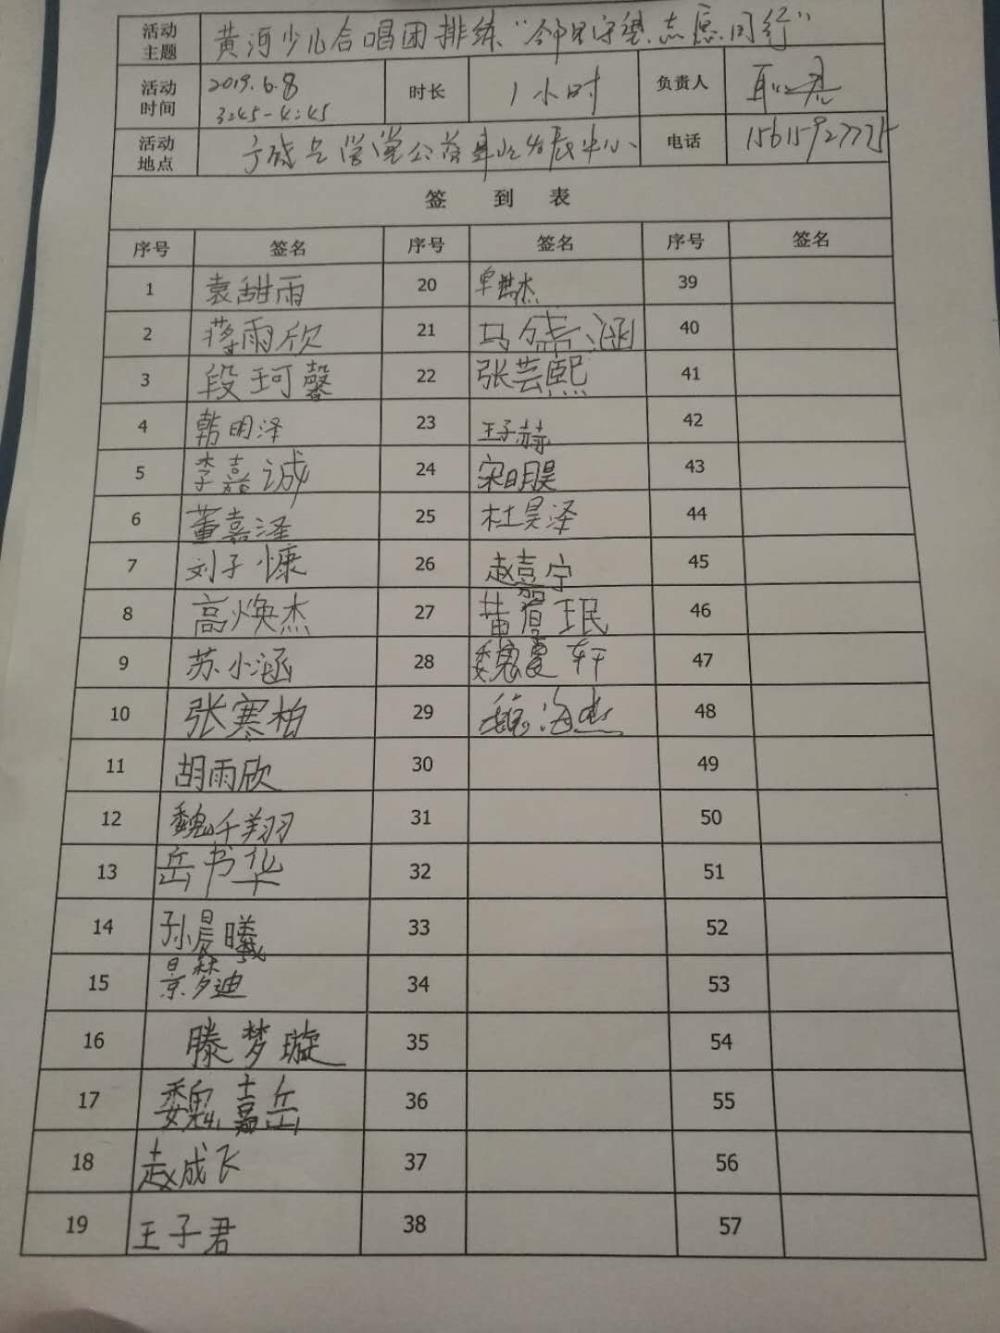 活动主题 黄河少儿合唱团排练"邻里守望、志愿同行"
活动时间 2019.6.8 3:45-4:45 时长 1小时 负责人
活动地点 公益 中心、 电话
签 到 表
序号 签名 序号 签名 序号 签名
1 袁甜雨 20 牟世杰 39
2 蒋雨欣 21 马 涵 40
3 段珂馨 22 张芸熙 41
4 韩明泽 23 王子赫 42
5 李嘉诚 24 宋明昊 43
6 董嘉泽 25 杜昊泽 44
7 刘子慷 26 赵嘉宁 45
8 高焕杰 27 珉 46
9 苏小涵 28 魏夏轩 47
10 张寒柏 29 魏海杰 48
11 胡雨欣 30 49
12 魏千翔 31 50
13 岳书华 32 51
14 孙晨曦 33 52
15 景梦迪 34 53
16 滕梦璇 35 54
17 魏嘉岳 36 55
18 赵成飞 37 56
19 王子君 38 57